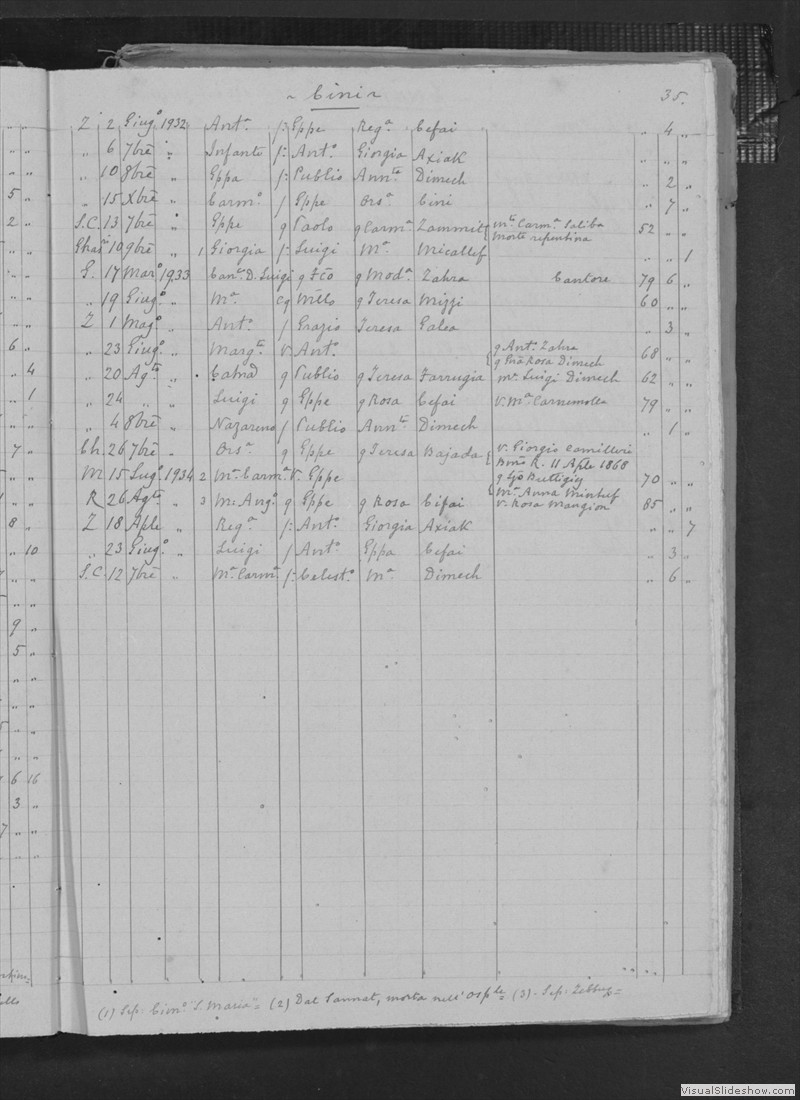 ~ Cini ~ 35.
Z 2 Giugº 1932 Antª f: Eppe Regª Cefai „ 4 „
„ 6 7brē „ Infante f: Antº Giorgia Axiak „ „ „
„ 10 8brē „ Eppa f: Publio Annta Dimech „ 2 „
„ 15 Xbrē „ Carmº f Eppe Orsª Cini „ 7 „
S.C. 13 7brē „ Eppe q Paolo q Carmª Zammit mta Carmª Saliba morte repentina 52 „ „
10 9brē „ 1 Giorgia f: Luigi Mª Micallef „ „ 1
G. 17 Marº 1933 Canco D. Luigi q Fcō q Modª Zahra Cantore 79 6 „
„ 19 Giugº „ Mª q Teresa Mizzi 60 „ „
Z 1 Magº „ Antº f Grazio Teresa Galea „ 3 „
„ 23 Giugº „ Margta v. Antº q Antº Zahra q Rosa Dimech 68 „ „
„ 20 Agto „ q Publio q Teresa Farrugia mª Luigi Dimech 62 „ „
„ 24 „ „ Luigi q Eppe q Rosa Cefai v. Mª Carnemolla 79 „ „
„ 4 8brē „ Nazareno f Publio Annta Dimech „ 1 „
Ch. 26 7brē „ Orsª q Eppe q Teresa Bajada v. Giorgio Camilleri R. 11 Aple 1868
M 15 Lugº 1934 2 Mª Carmª v. Eppe q Buttigieg Mª Anna Mintuf 70 „ „
R 26 Agto „ 3 Mª Angª q Eppe q Rosa Cifai v. Rosa Mangion 85 „ „
Z 18 Aple „ Regª f: Antº Giorgia Axiak „ „ 7
„ 23 Giugº „ Luigi f Antº Eppa Cefai „ 3 „
S.C. 12 7brē „ Mª Carmª f: Celestº Mª Dimech „ 6 „
(1) Sep: Cimº "S. Maria". (2) Dal Sannat, morta nell'Osple (3). Sep: Zebbug=
VisualSlideshow.com